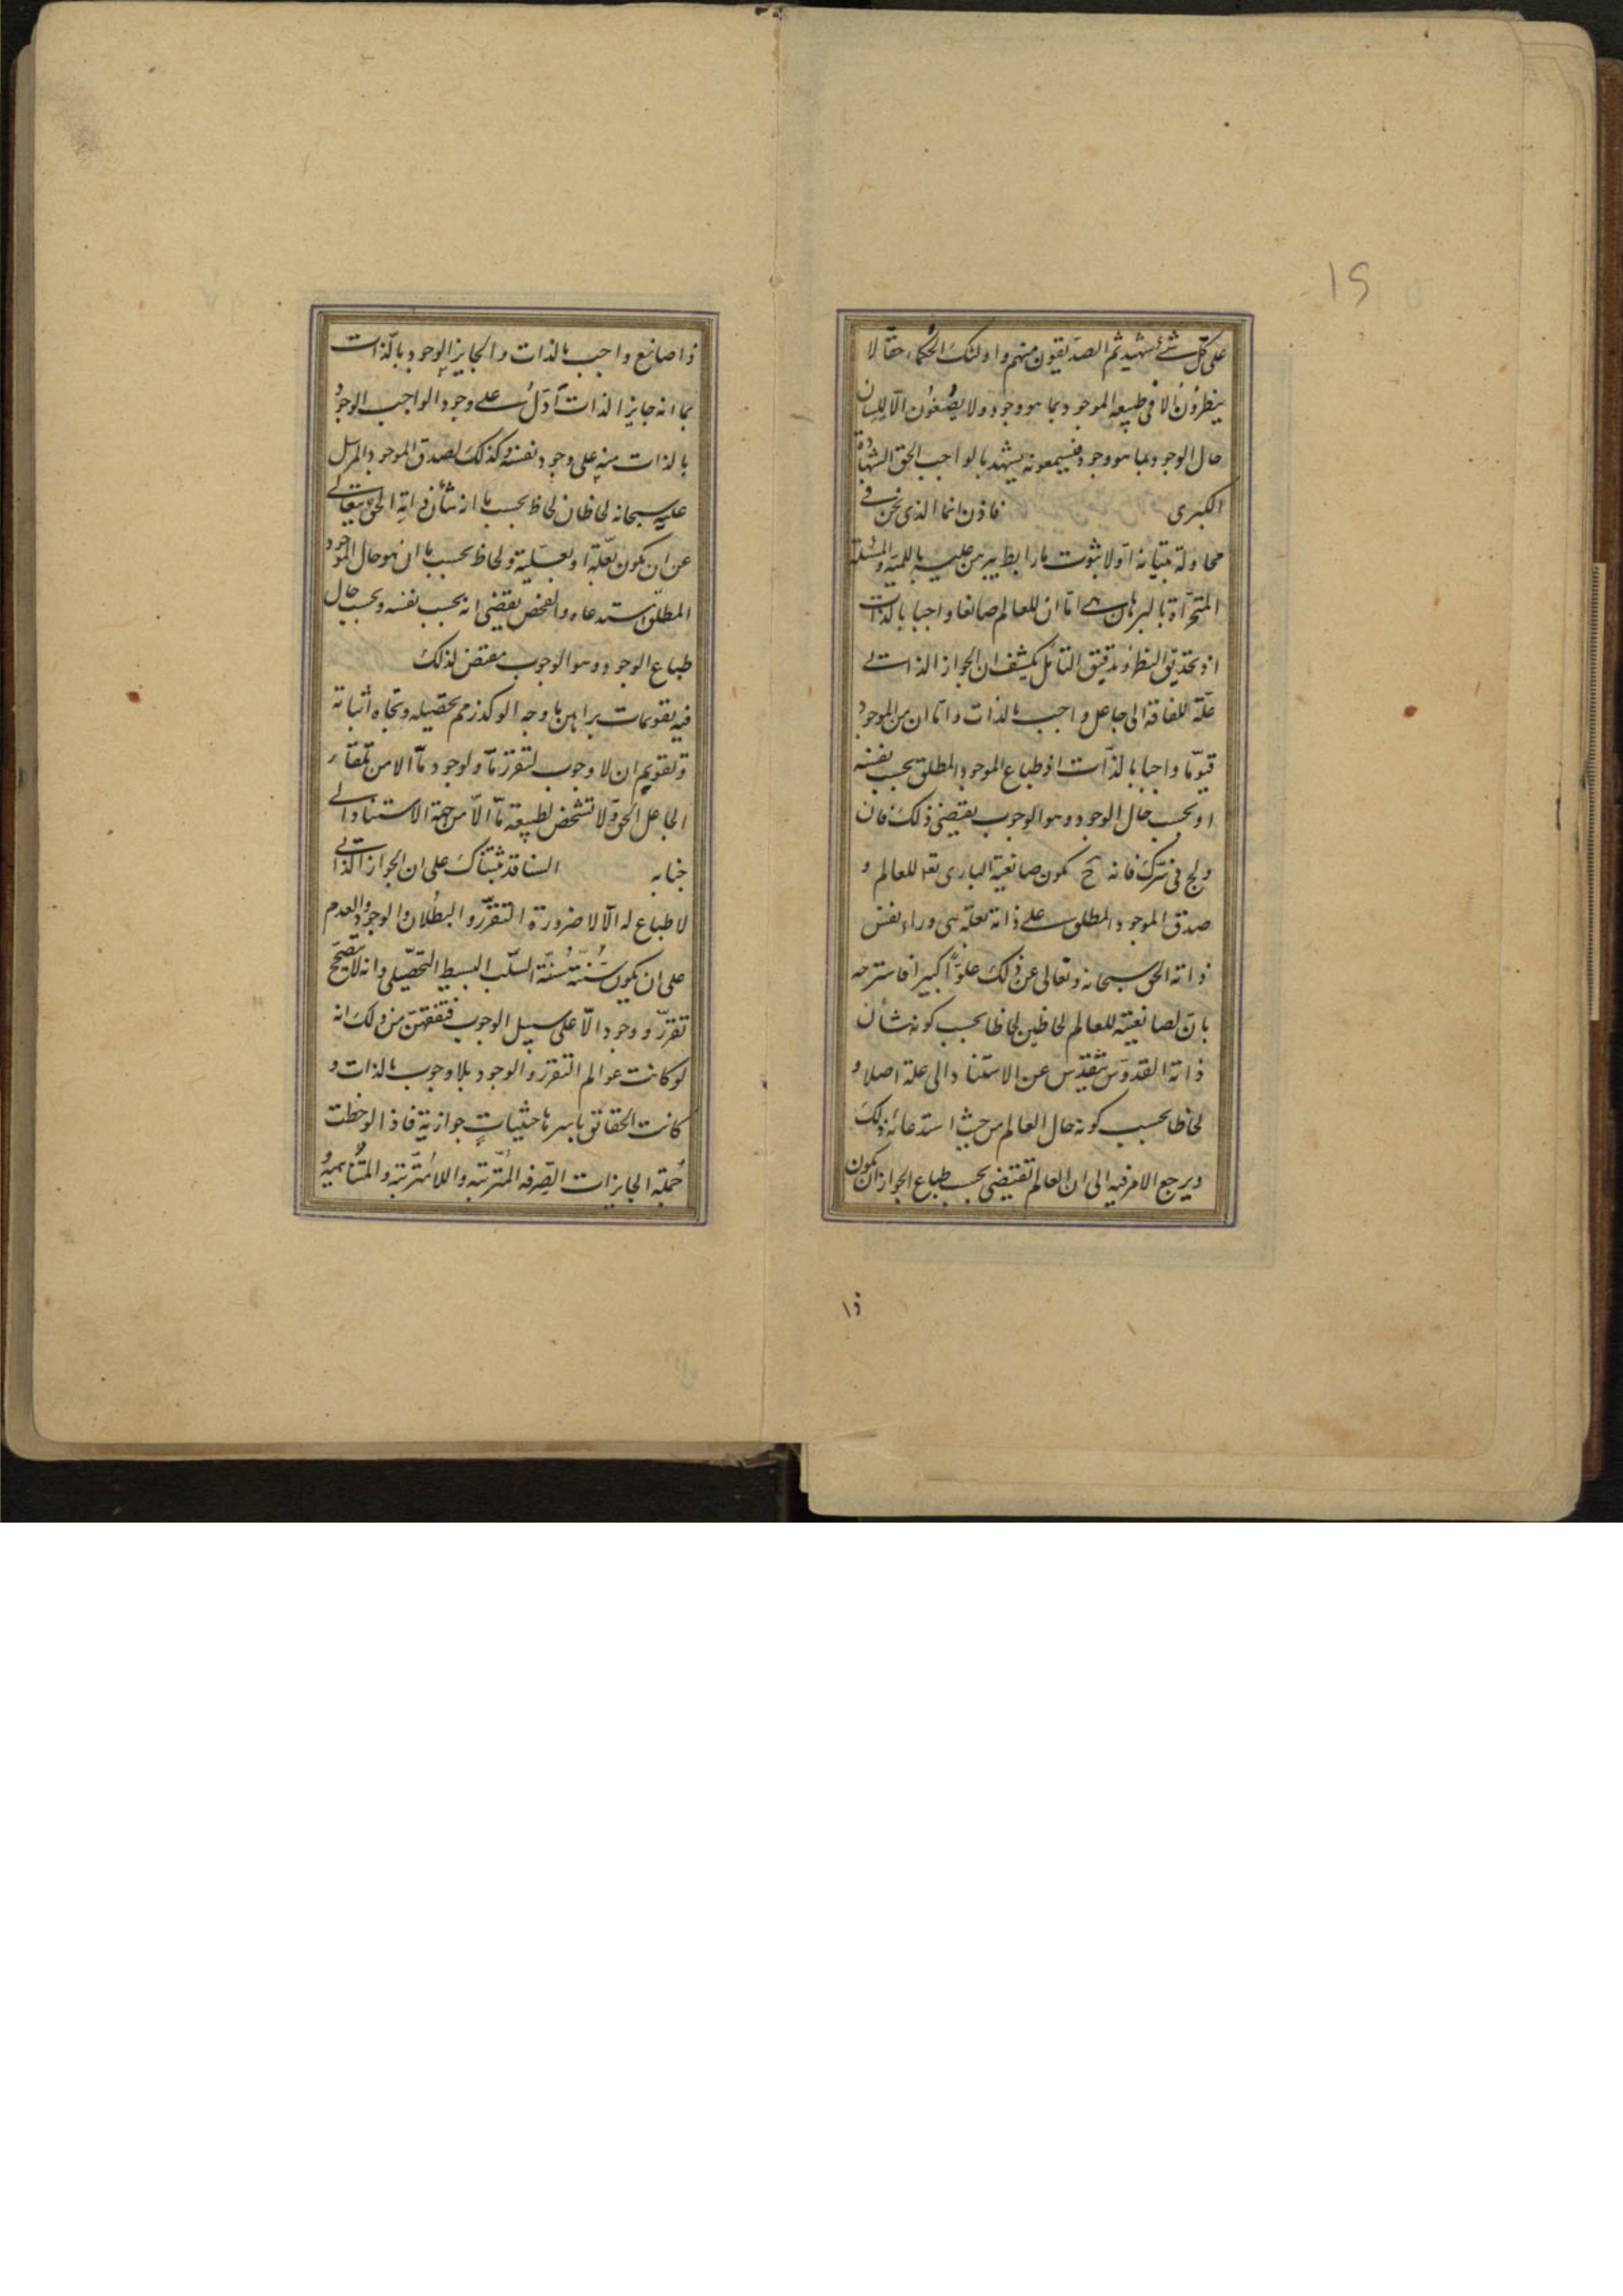 ١٦
على كل شئ شهيد ثم الصديقون منهم واولئك الحكماء حقا لا
ينظرون الا في طبيعة الموجود بما هو موجود ولا يصغون الا للسان
حال الوجود بما هو وجود فيسمعونه يشهد بالواجب الحق الشهادة
الكبرى فاذن انما الذى نحن في
محاولة تبيانه اولا ثبوت ما رابطى يبرهن عليه باللمية والمسئلة
المتحراة بالبرهان اما ان للعالم صانعا واجبا بالذات
اذ تحديق النظر وتدقيق التامل يكشف ان الجواز الذاتى
علة للفاقة الى جاعل واجب بالذات واما ان من الموجود
قيوما واجبا بالذات اذ طباع الموجود المطلق بحسب نفسه
او بحسب حال الوجود وهو الوجوب يقتضى ذلك فان
ولج في سرك فانه ح يكون صانعية البارى تعا للعالم و
صدق الموجود المطلق على ذاته بعلة هى وراء نفس
ذاته الحق سبحانه وتعالى عن ذلك علوا كبيرا فاسترحه
بان لصانعيته للعالم لحاظين لحاظا بحسب كونه شأن
ذاته القدوس متقدس عن الاستناد الى علة اصلا و
لحاظا بحسب كونه حال العالم من حيث استدعائه ذلك
ويرجع الامر فيه الى ان العالم تقتضى بحسب طباع الجواز ان يكون
ذا
ذا صانع واجب بالذات والجايز الوجود بالذات
بما انه جايز الذات ادل على وجود الواجب الوجود
بالذات منه على وجود نفسه وكذلك لصدق الموجود المرسل
عليه سبحانه لحاظان لحاظ بحسب ما انه شأن ذاته الحق يتعالى
عن ان يكون بعلة او بعلية ولحاظ بحسب ما ان هو حال الموجود
المطلق استدعاه والفحص يقتضى انه بحسب نفسه وبحسب حال
طباع الوجود وهو الوجوب مقتض لذلك
فيه تقويمات براهين ما وجه الوكد زمم تحصيله وتجاه اثباته
وتقويم ان لا وجوب لتقرر ما ولوجود ما الا من تلقاء
الجاعل الحق ولا تشخص لطبيعة ما الا من جهة الاستناد الى
جنابه السنا قد ثبتناك على ان الجواز الذاتى
لا طباع له الا لا ضرورة التقرر والبطلان والوجود والعدم
على ان يكون سنته سنة السلب البسيط التحصيلى وانه لا يتصحح
تقرر ووجود الا على سبيل الوجوب فتفقهن من ذلك انه
لو كانت عوالم التقرر والوجود بلا وجوب بالذات و
كانت الحقائق باسرها حيثيات جوازية فاذا لوحظت
جملة الجايزات الصرفه المترتبه واللامترتبه والمتناهية